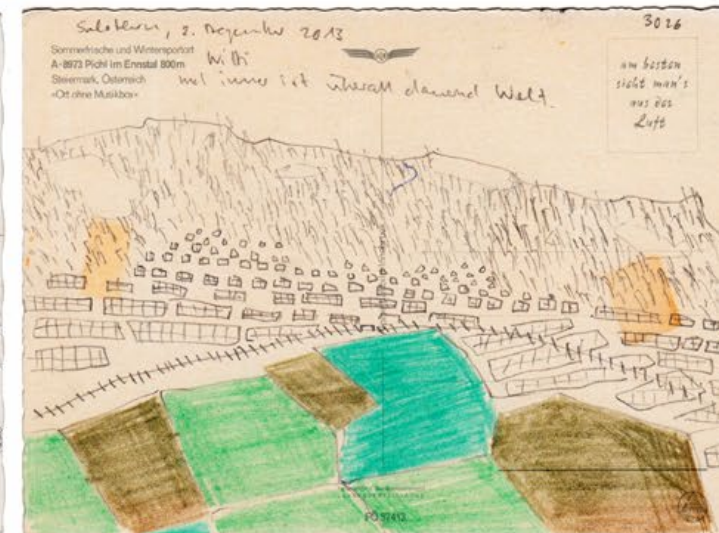 Solothurn, 2. Dezember 2013
3026
Sommerfrische und Wintersportort
A-8973 Pichl im Ennstal 800m
Steiermark, Österreich
«Ort ohne Musikbox»
Willi
und immer ist überall dauernd Welt.
am besten
sieht man's
aus der
Luft
PÖ 57412